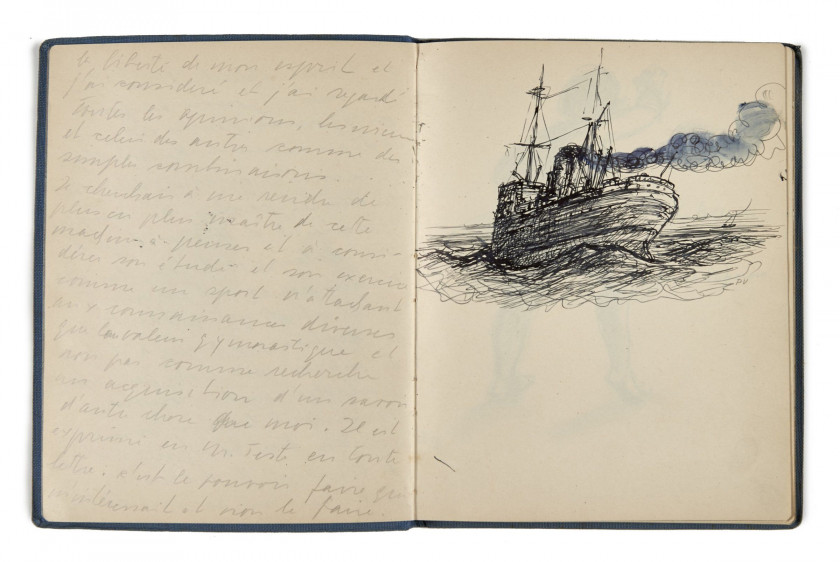 la liberté de mon esprit et
j'ai considéré et j'ai regardé
toutes les opinions, les miennes
et celui des autre comme des
simples combinaisons.
Je cherchais à me rendre de
plus en plus maître de cette
machine à penser et à consi-
dérer son étude et son exercice
comme un sport n'attachant
aux connaissances diverses
que la valeur gymnastique et
non pas comme recherche
ou acquisition d'un savoir
d'autre chose que moi. Il est
exprimé en Mr. Teste en toute
lettre. c'est le pouvoir faire qui
m'intéressait et non le faire.
PV